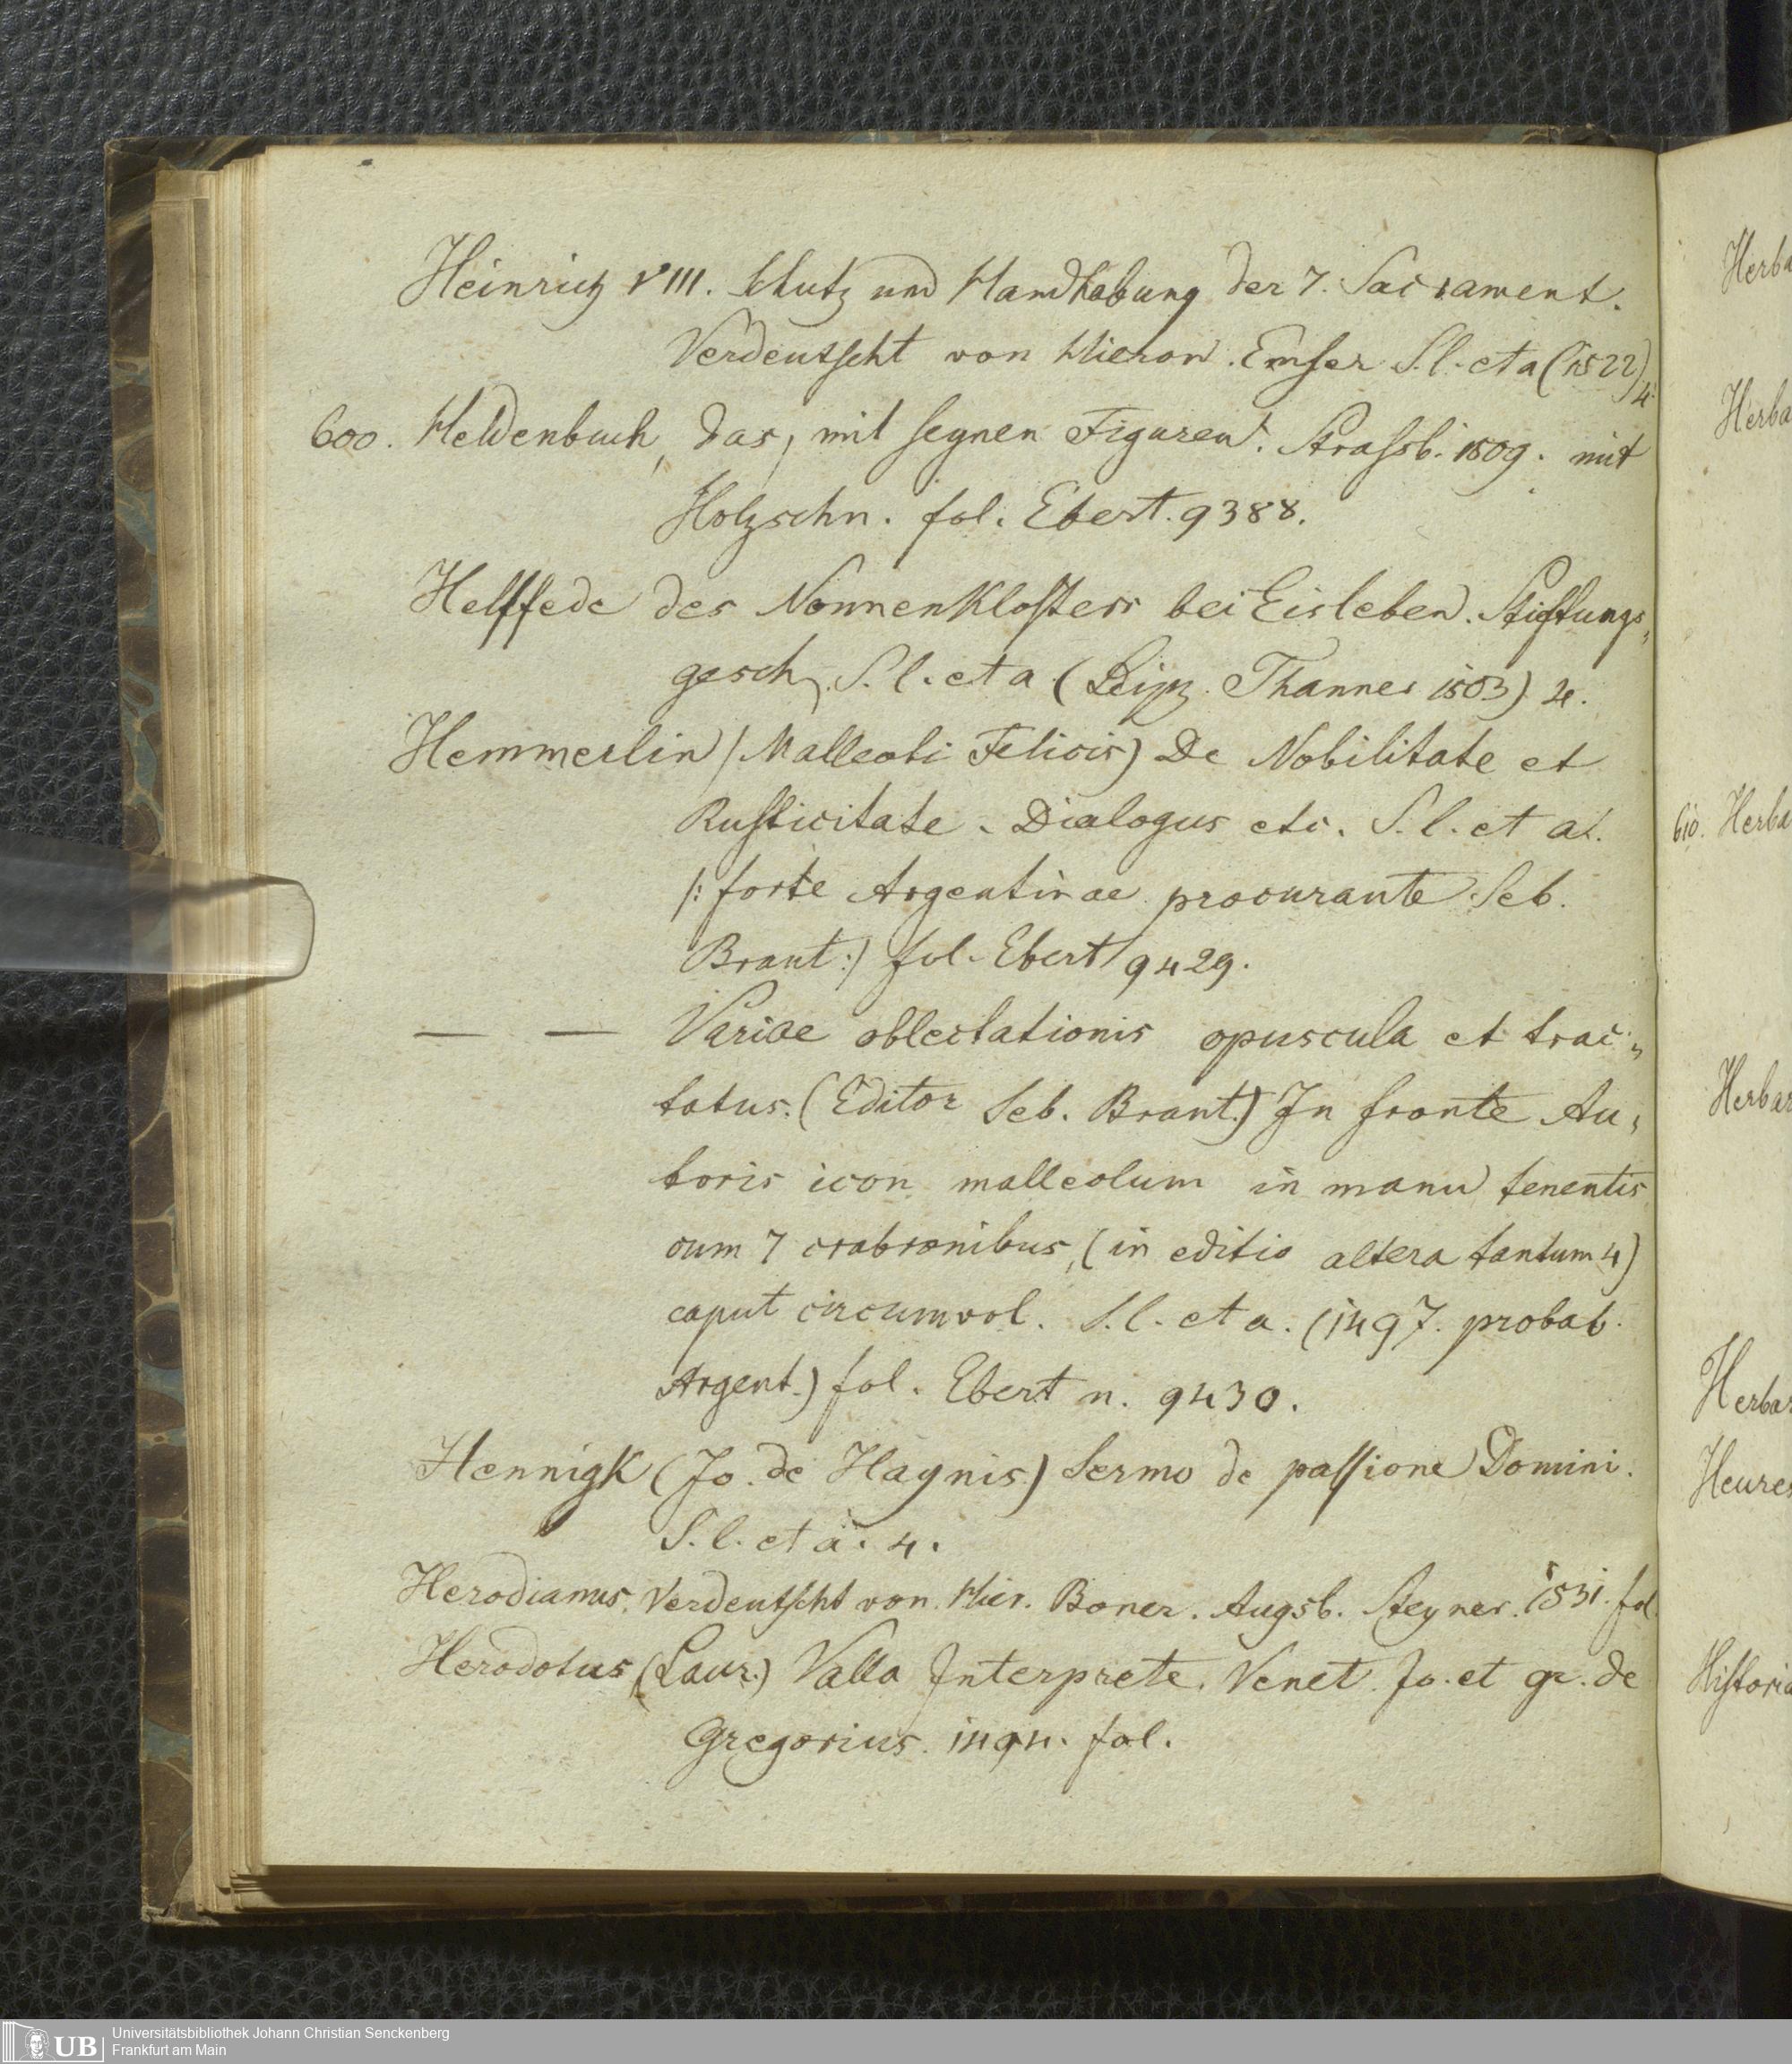 Heinrich VIII. Schutz und Handhabung der 7. Sacrament.
Verdeutscht von Hieron. Emser S. l. et a (1522) 4.
600. Heldenbuch, das, mit seynen Figuren. Strassb. 1509. mit
Holzschn. fol. Ebert. 9388.
Helffede des Nonnenklosters bei Eisleben. Stiftungs„
gesch. S. l. et a. (Leipz. Thanner 1503) 4.
Hemmerlin (Malleoli Felicis) De Nobilitate et
Rusticitate. Dialogus etc. S. l. et a.
/: forte Argentinae procurante Seb.
Brant:/ fol. Ebert 9429.
— — Variae oblectationis opuscula et trac„
tatus. (Editor Seb. Brant.) In fronte Au„
toris icon malleolum in manu tenentis
cum 7 crabronibus, (in editio altera tantum 4)
caput circumvol. S. l. et a. (1497. probab.
Argent.) fol. Ebert n. 9430.
Hennigk (Jo. de Haynis) Sermo de passione Domini.
S. l. et a. 4.
Herodianus. Verdeutscht von Hier. Boner. Augsb. Steyner. 1531. fol.
Herodotus (Laur.) Valla Interprete. Venet. Jo. et gr. de
Gregorius. 1494. fol.
Herba
Herba
610. Herba
Herbar
Herbar
Heures
Historia
UB
Universitätsbibliothek Johann Christian Senckenberg
Frankfurt am Main